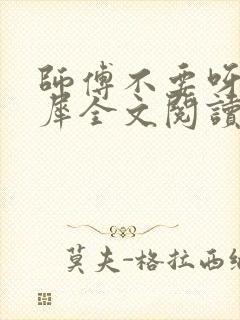 師傅不要呀
犀全文閱讀
莫夫-格拉西